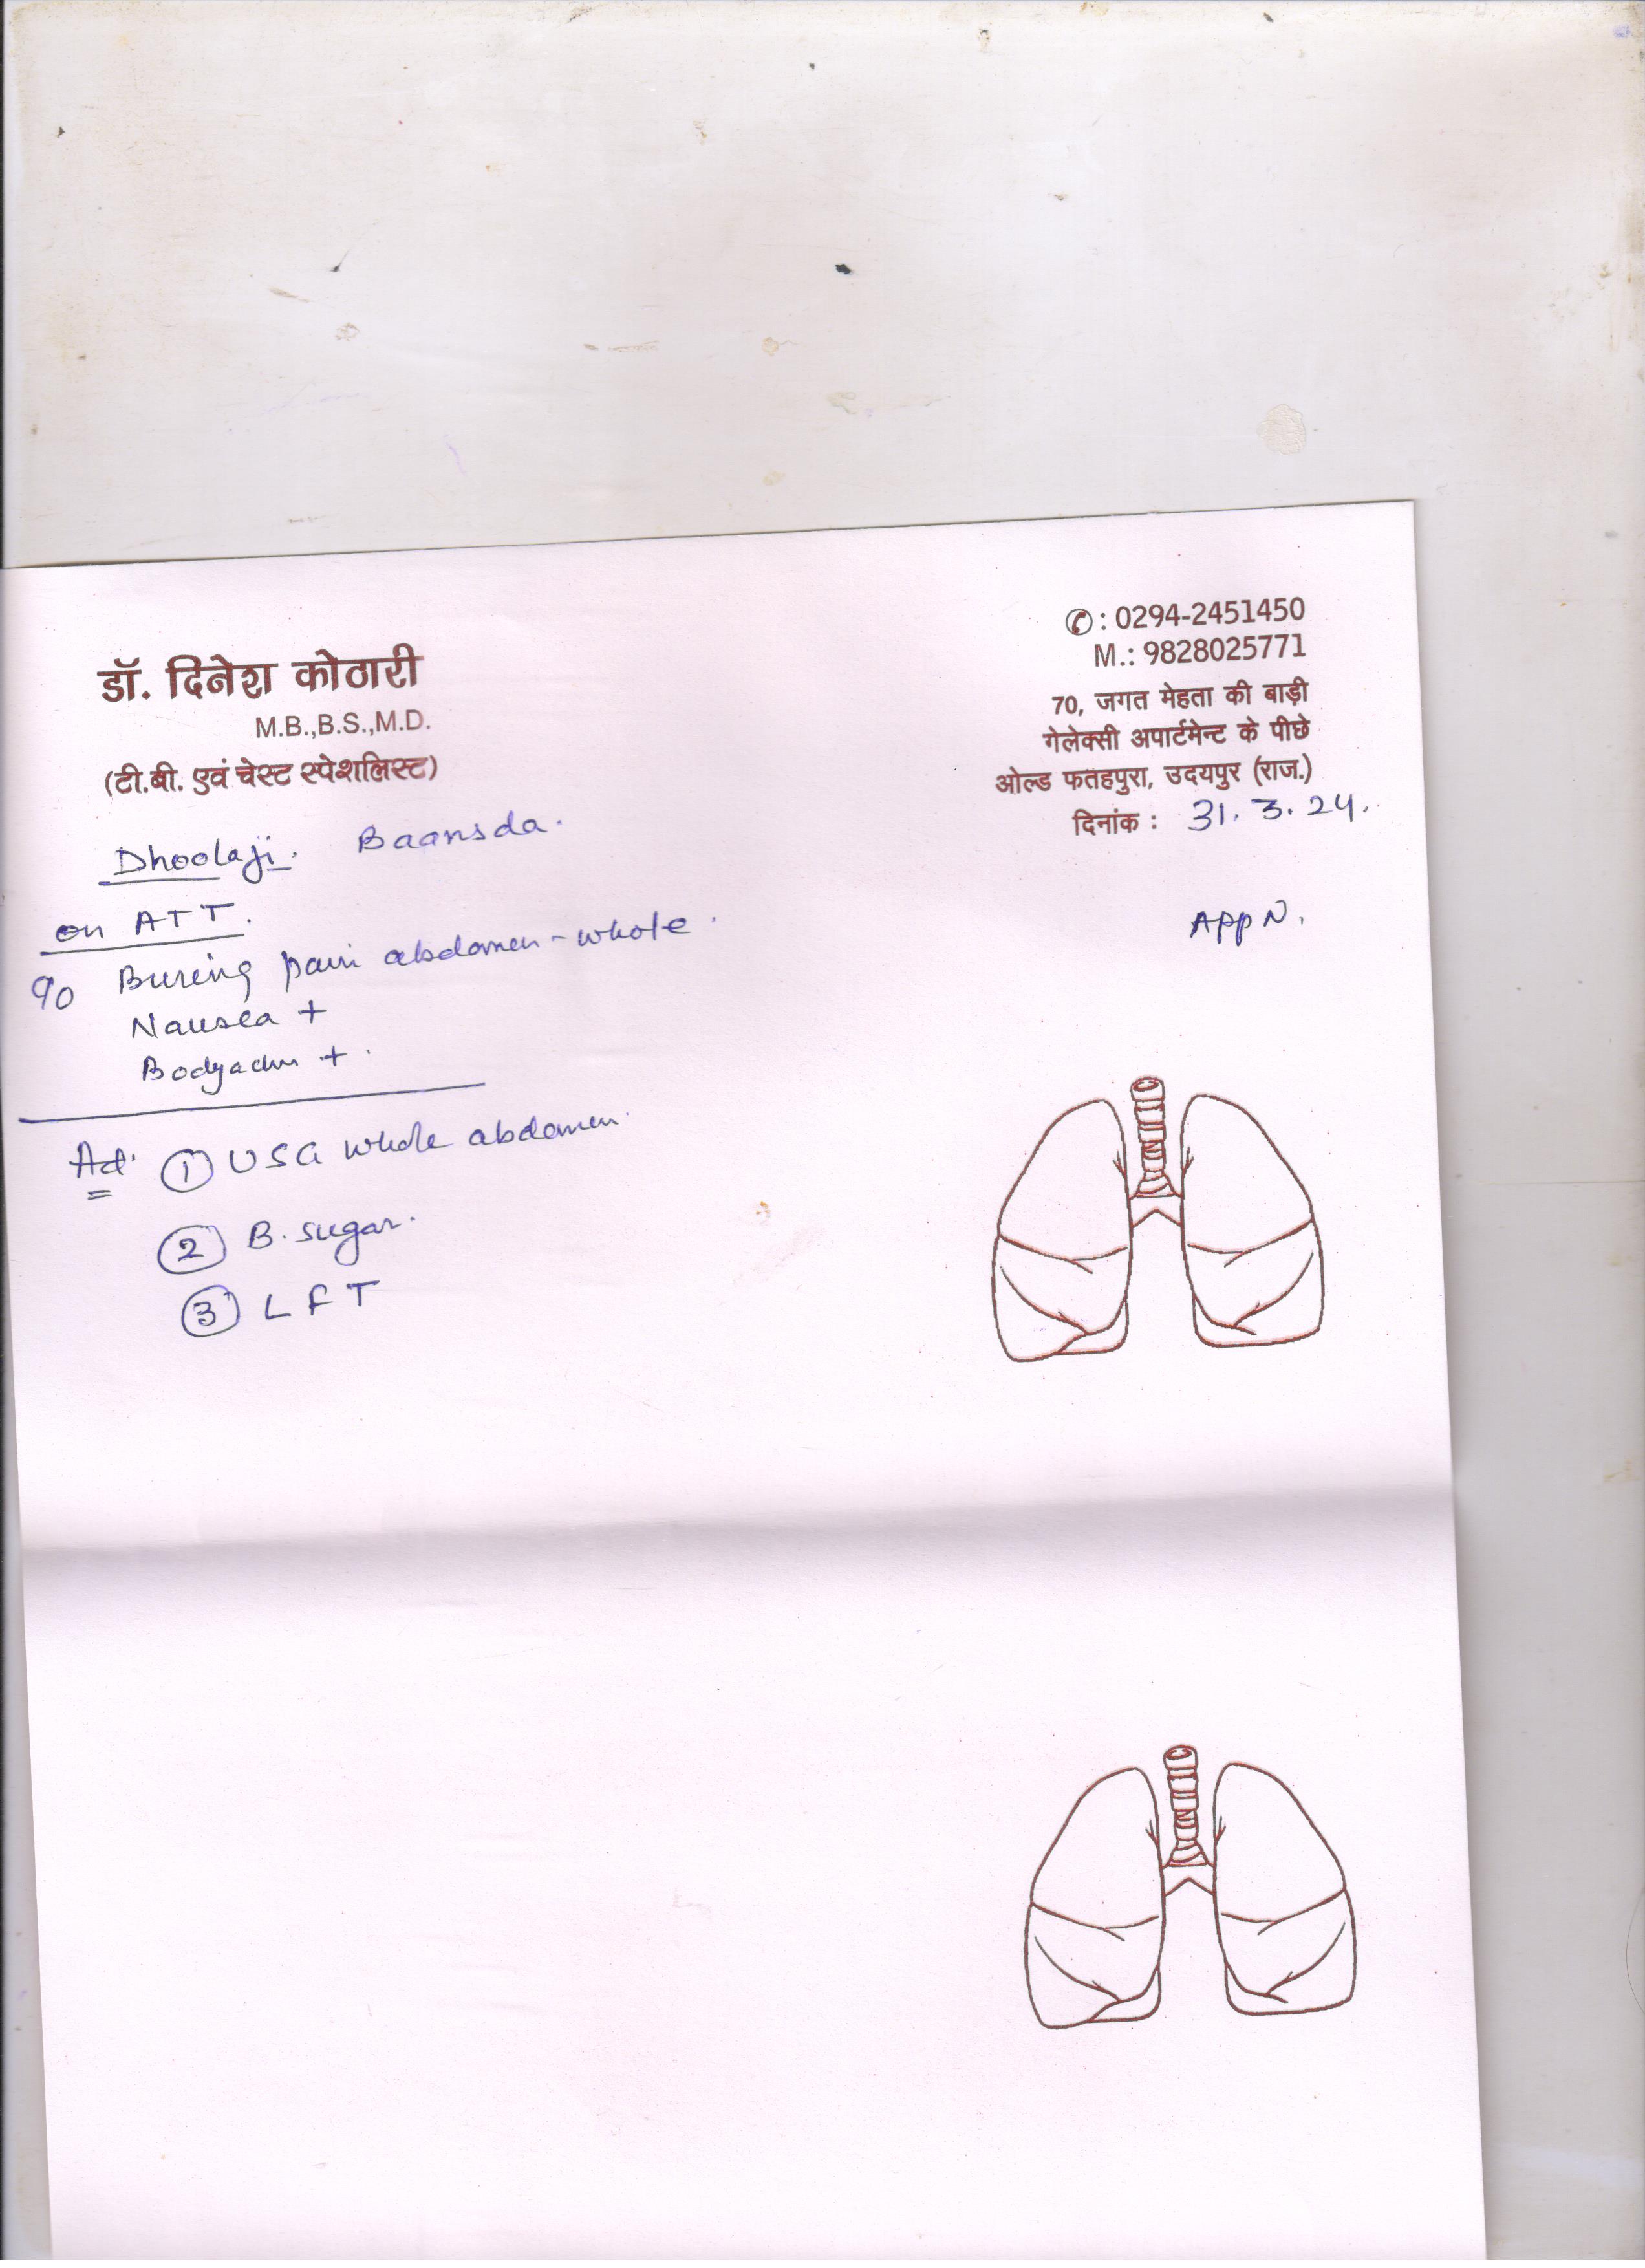 डॉ. दिनेश कोठारी
M.B.,B.S.,M.D.
(टी.बी. एवं चेस्ट स्पेशलिस्ट)
✆: 0294-2451450
M.: 9828025771
70, जगत मेहता की बाड़ी
गेलेक्सी अपार्टमेन्ट के पीछे
ओल्ड फतहपुरा, उदयपुर (राज.)
दिनांक : 31. 3. 24.
Dhoolaji. Baansda.
on ATT.
App N.
c/o Burning pain abdomen - whole.
Nausea +
Bodyache +.
Ad. ① USG whole abdomen.
② B. sugar.
③ LFT